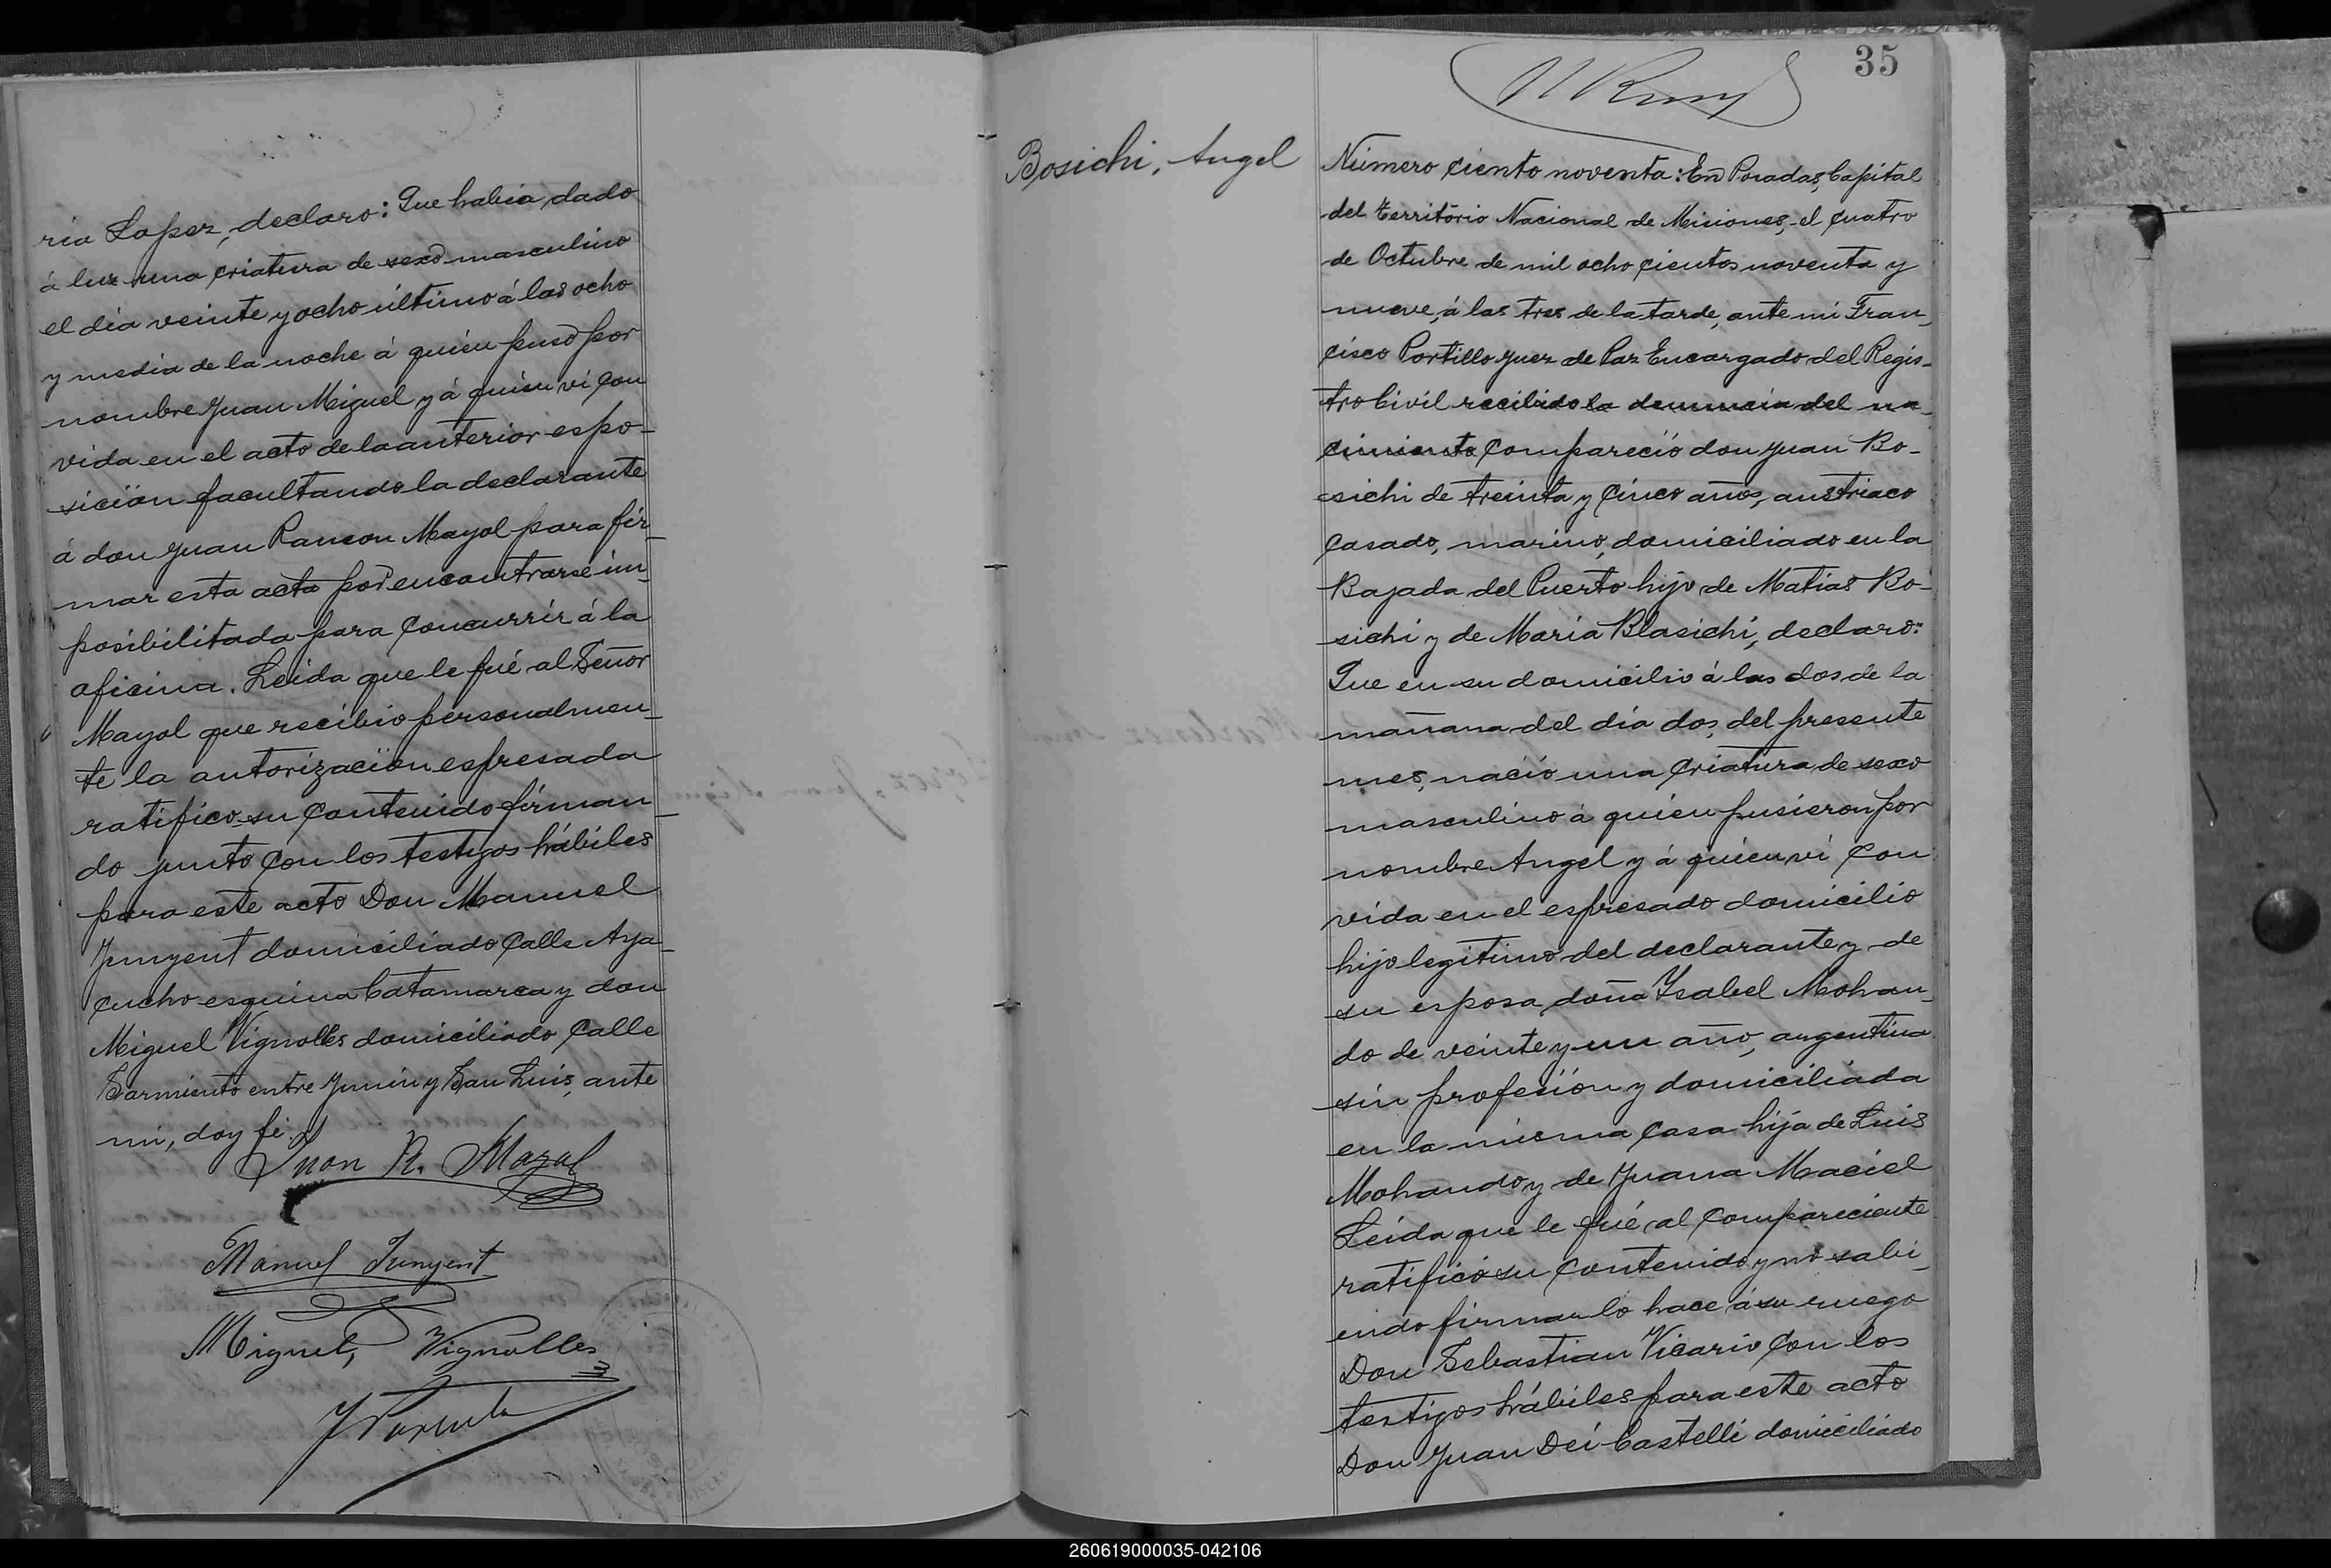 ria Lopez, declaro: Que habia dado
á luz una criatura de sexo masculino
el dia veinte y ocho último á las ocho
y media de la noche á quien puso por
nombre Juan Miguel y á quien vi con
vida en el acto de la anterior espo-
sición facultando la declarante
á don Juan Ramon Mayol para fir-
mar esta acta por encontrarse im-
posibilitada para concurrir á la
oficina. Leida que le fué al Señor
Mayol que recibio personalmen-
te la autorización espresada
ratifico su contenido firman-
do junto con los testigos hábiles
para este acto Don Manuel
Junyent domiciliado calle Aya-
cucho esquina Catamarca y don
Miguel Vignolles domiciliado calle
Sarmiento entre Junin y San Luis, ante
mi, doy fé.
Juan R. Mayol
Manuel Junyent
Miguel Vignolles
35
Bosichi, Angel
Número ciento noventa: En Posadas, Capital
del territorio Nacional de Misiones, el cuatro
de Octubre de mil ocho cientos noventa y
nueve, á las tres de la tarde, ante mi Fran-
cisco Portillo Juez de Paz Encargado del Regis-
tro Civil recibido la denuncia del na-
cimiento compareció don Juan Bo-
sichi de treinta y cinco años, austriaco
casado, marino, domiciliado en la
Bajada del Puerto hijo de Matias Bo-
sichi y de Maria Blasichi, declaro:
Que en su domicilio á las dos de la
mañana del dia dos, del presente
mes, nació una criatura de sexo
masculino á quien pusieron por
nombre Angel y á quien vi con
vida en el espresado domicilio
hijo legitimo del declarante y de
su esposa doña Ysabel Mohan-
do de veinte y un año, argentina
sin profesión y domiciliada
en la misma casa hija de Luis
Mohando y de Juana Maciel
Leida que le fué al compareciente
ratificó su contenido y no sabi-
endo firmar lo hace á su ruego
Don Sebastian Vicario con los
testigos hábiles para este acto
Don Juan Dei Castelli domiciliado
260619000035-042106